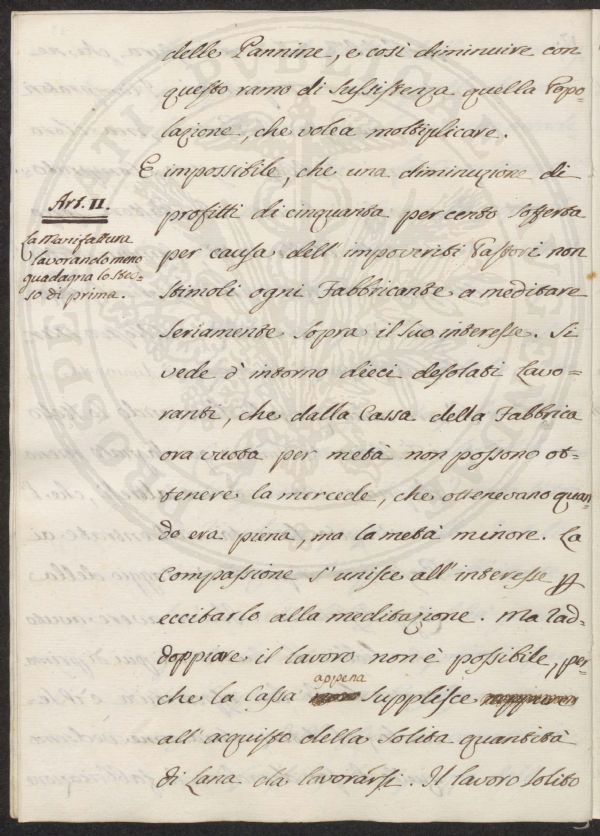 delle Pannine, e così diminuire con
questo ramo di sussistenza quella Popo-
lazione, che volea moltiplicare.
E impossibile, che una diminuzione di
Art. II.
profitti di cinquanta per cento sofferta
La Manifattura
lavorando meno
guadagna lo stes-
so di prima.
per causa dell'impoveriti Pastori non
stimoli ogni Fabbricante a meditare
seriamente sopra il suo interesse. Si
vede d'intorno dieci desolati Lavo=
ranti, che dalla Cassa della Fabbrica
ora vuota per metà non possono ot=
tenere la mercede, che ottenevano quan=
do era piena, ma la metà minore. La
Compassione s'unisce all'interesse p
eccitarlo alla meditazione. Ma rad=
doppiare il lavoro non è possibile, per=
che la Cassa appena supplisce
all'acquisto della solita quantità
di Lana da lavorarsi. Il lavoro solito